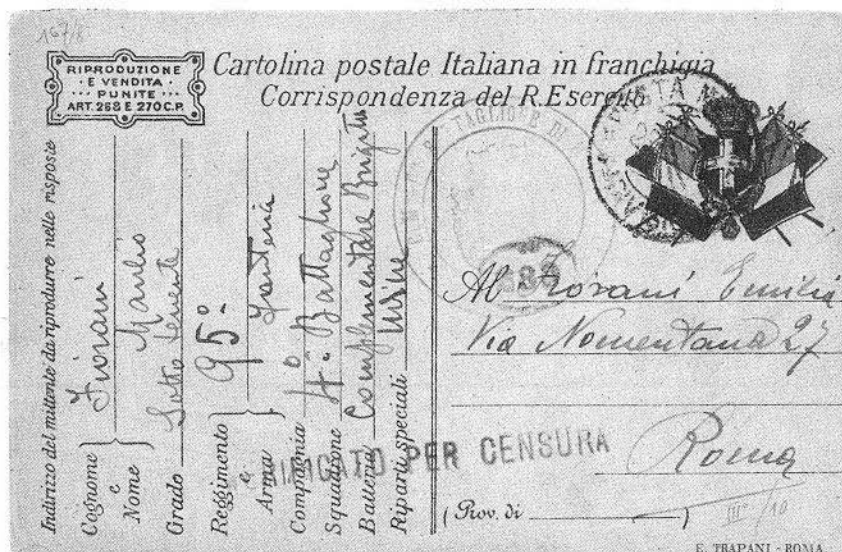 167/8
RIPRODUZIONE
E VENDITA
PUNITE
ART. 268 E 270 C.P.
Cartolina postale Italiana in franchigia
Corrispondenza del R. Esercito
Indirizzo del mittente da riprodurre nelle risposte
Cognome e Nome Fiorani Manlio
Grado Sotto Tenente
Reggimento e Arma 95º Fanteria
Compagnia
Squadrone 4º Battaglione
Batteria Complementare Brigata
Riparti speciali Udine
BATTAGLIONE DI
POSTA
Al Fiorani Emilio
Via Nomentana 27
Roma
(Prov. di )
PER CENSURA
III° /10
E. TRAPANI - ROMA